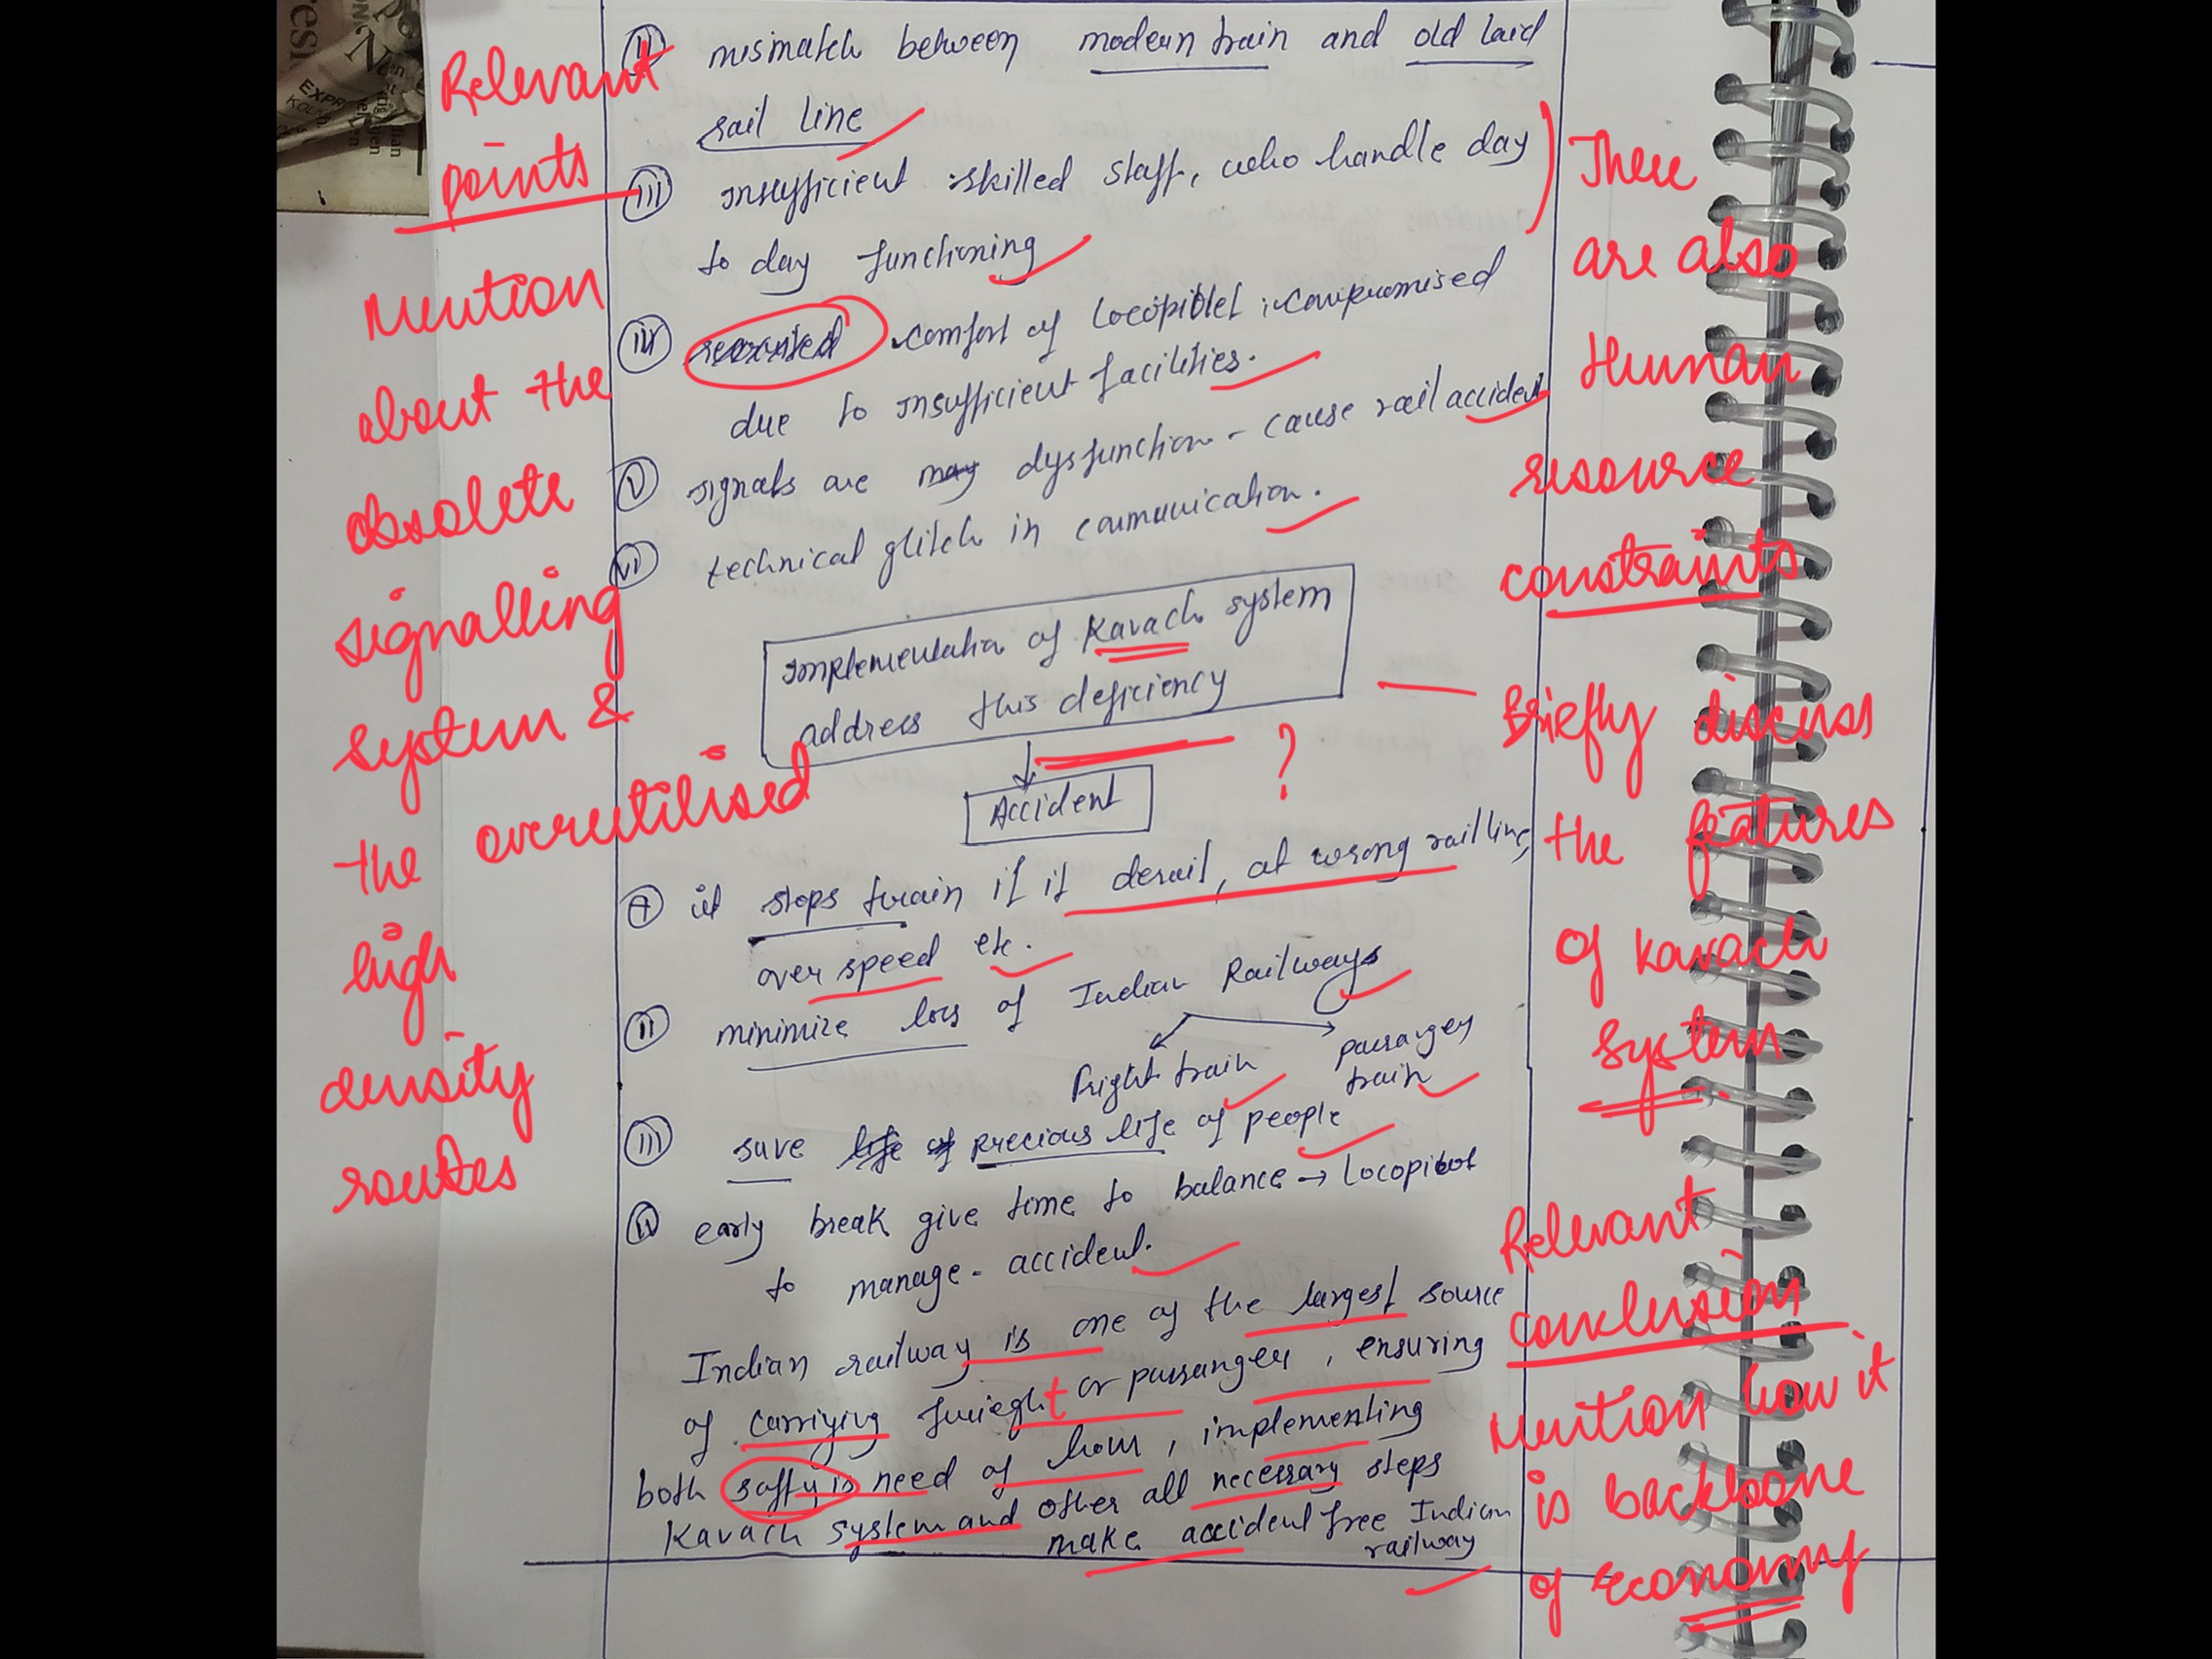 ii mismatch between modern train and old laid
rail line
iii insufficient skilled staff, who handle day
to day functioning
iv comfort of locopilot compromised
due to insufficient facilities.
v signals are may dysfunction - cause rail accident
vi technical glitch in communication.
Implementation of Kavach system
address this deficiency
Accident
it stops train if it derail, at wrong rail line,
over speed etc.
ii minimize loss of Indian Railways
fright train
passanger
train
iii save life of precious life of people
early break give time to balance → locopilot
to manage - accident.
Indian railway is one of the largest source
of carriying frieght or passanger, ensuring
both safty is need of hour, implementing
Kavach system and other all necessary steps
make accident free Indian
railway
Relevant
points
Mention
about the
obsolete
signalling
system &
the overutilised
high
density
routes
There
are also
Human
resource
constraints
?
Briefly discuss
the features
of Kavach
system
Relevant
conclusion
Mention how it
is backbone
of economy
EXPR